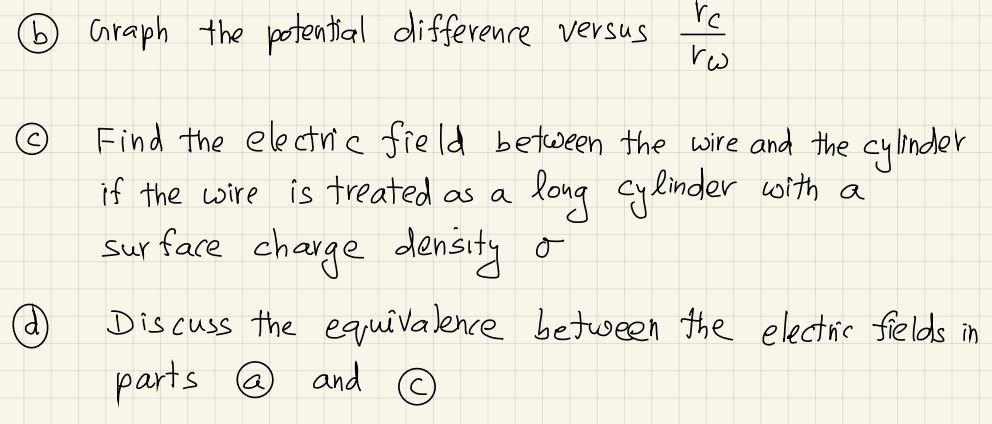 ⓑ Graph the potential difference versus rc/rω
ⓒ Find the electric field between the wire and the cylinder
if the wire is treated as a long cylinder with a
surface charge density σ
ⓓ Discuss the equivalence between the electric fields in
parts ⓐ and ⓒ